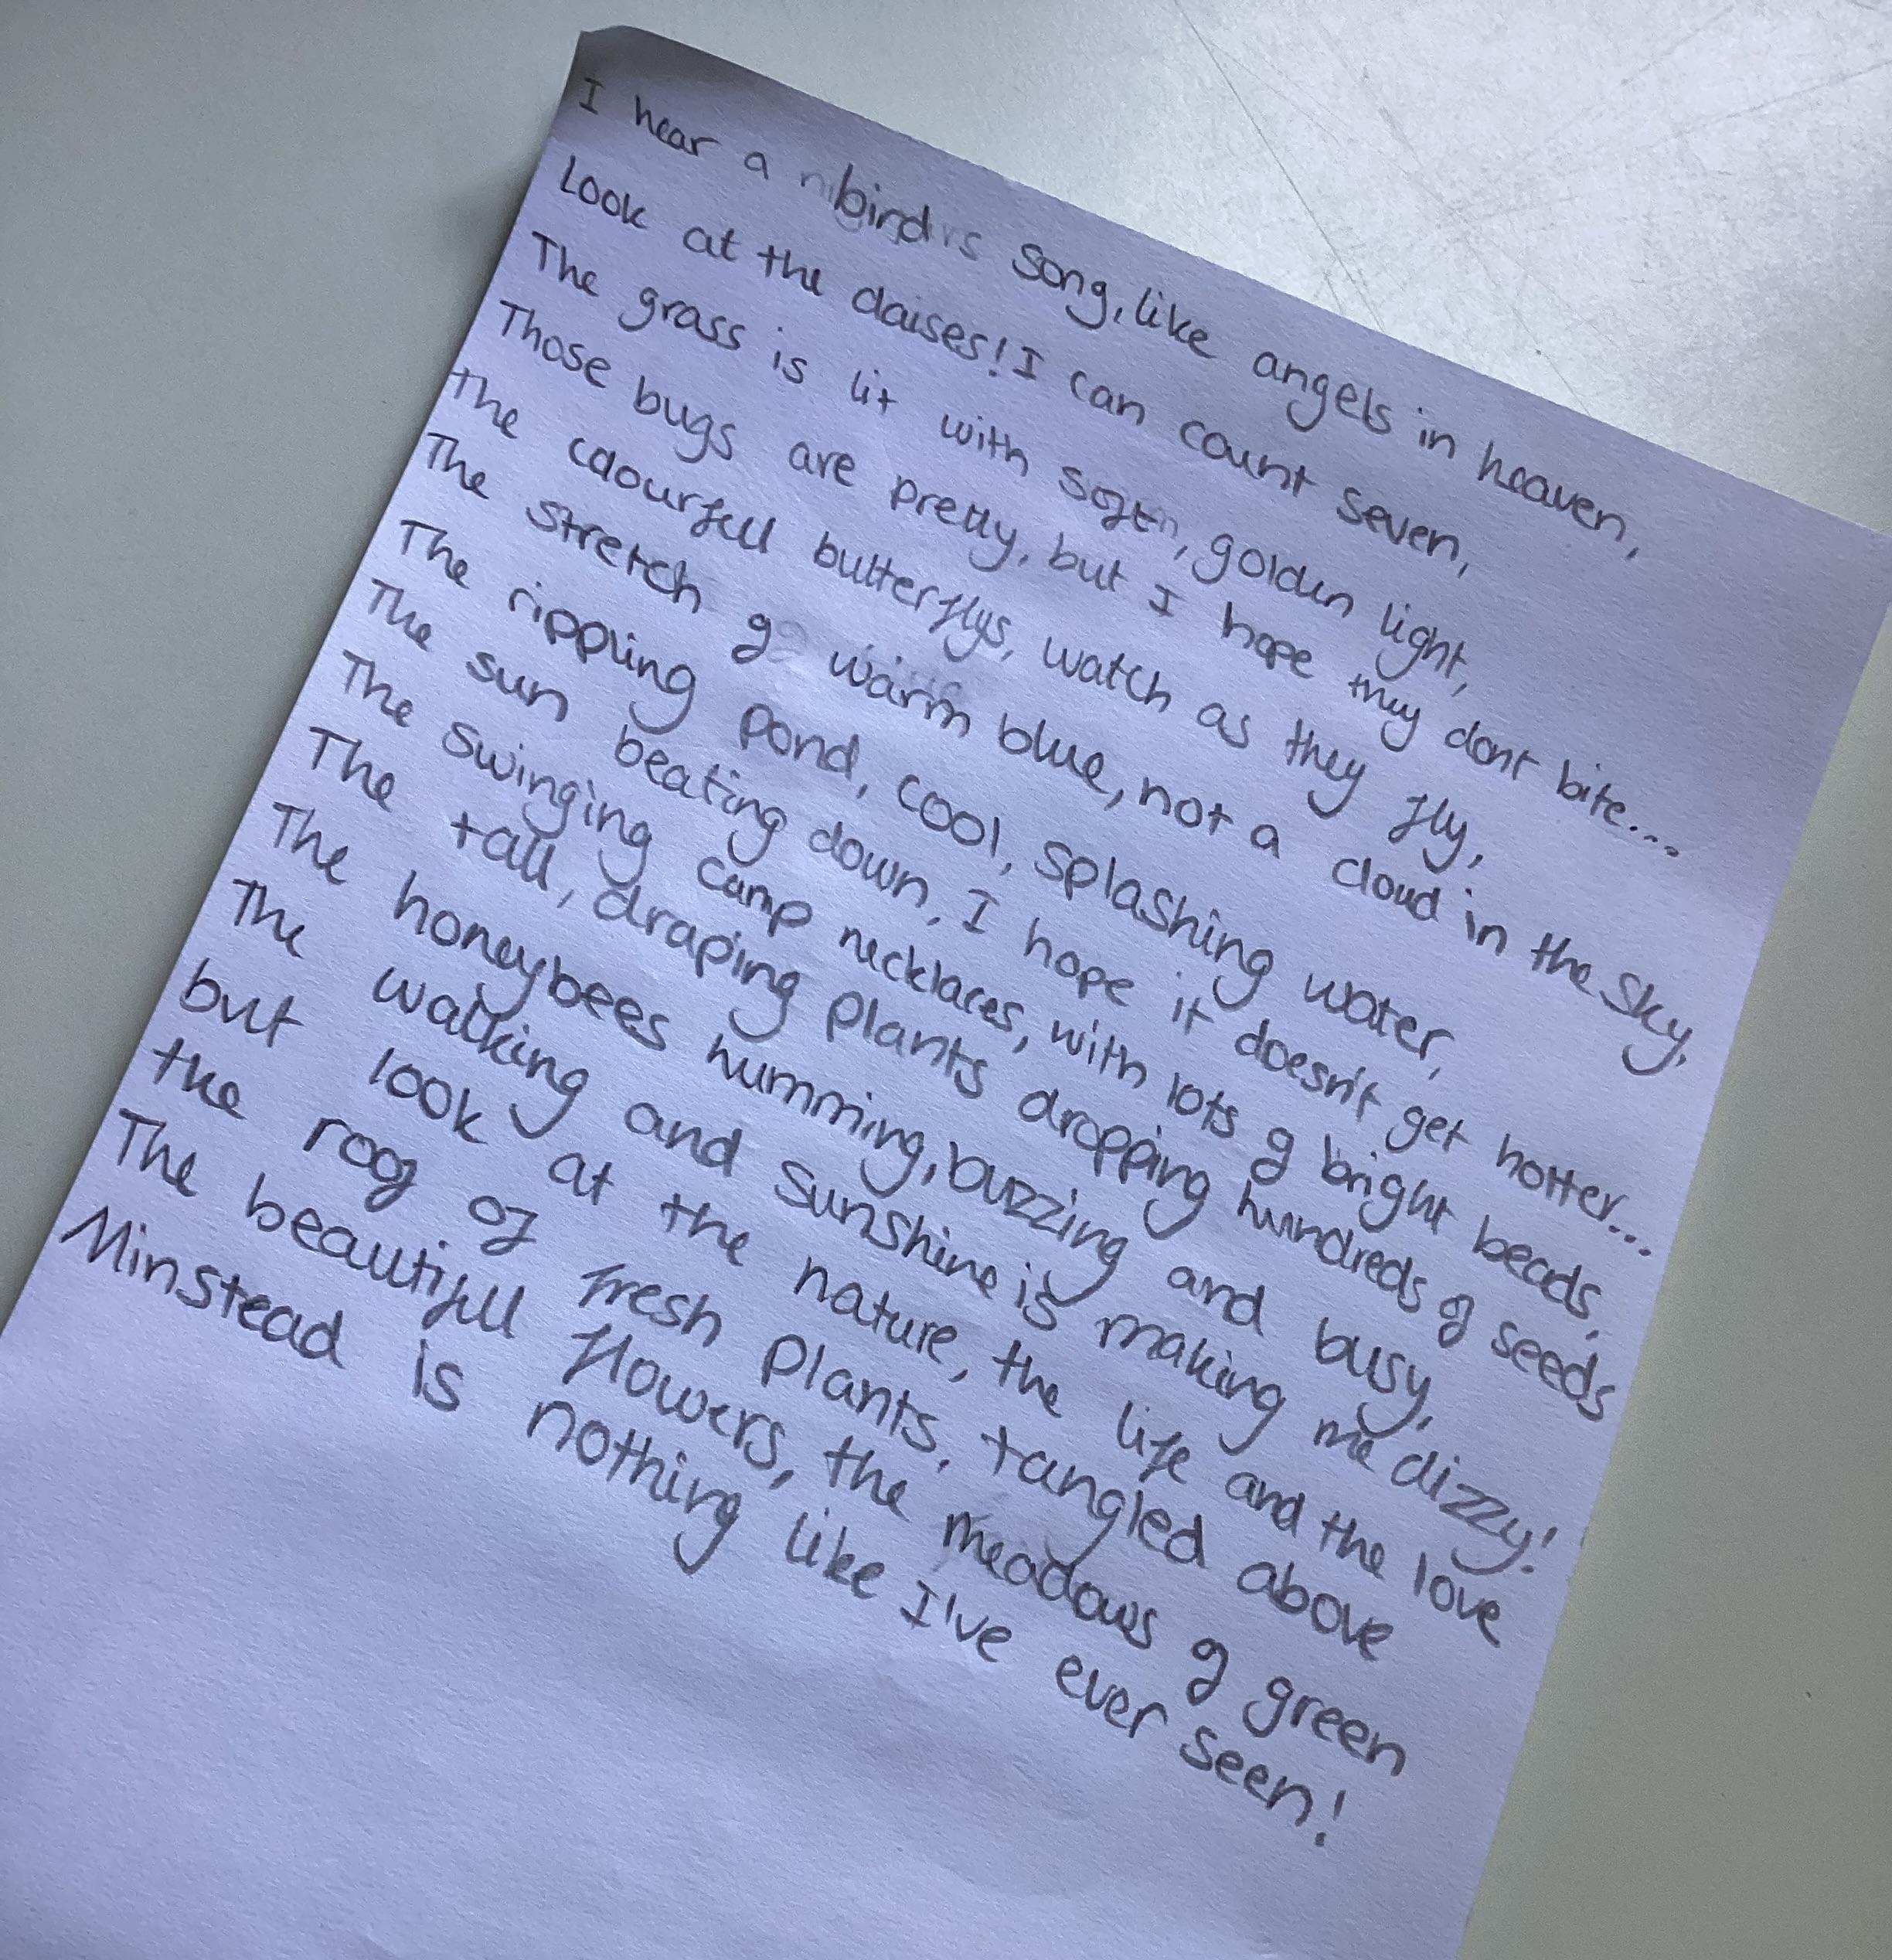 I hear a birds song, like angels in heaven,
Look at the daises! I can count seven,
The grass is lit with soft, golden light,
Those bugs are pretty, but I hope they dont bite...
The colourfull butterflys, watch as they fly,
The stretch of warm blue, not a cloud in the sky,
The rippling pond, cool, splashing water,
The sun beating down, I hope it doesn't get hotter...
The swinging camp necklaces, with lots of bright beads,
The tall, draping plants dropping hundreds of seeds
The honeybees humming, buzzing and busy,
The walking and sunshine is making me dizzy!
but look at the nature, the life and the love
the roof of fresh plants, tangled above
The beautifull flowers, the meadows of green
Minstead is nothing like I've ever seen!